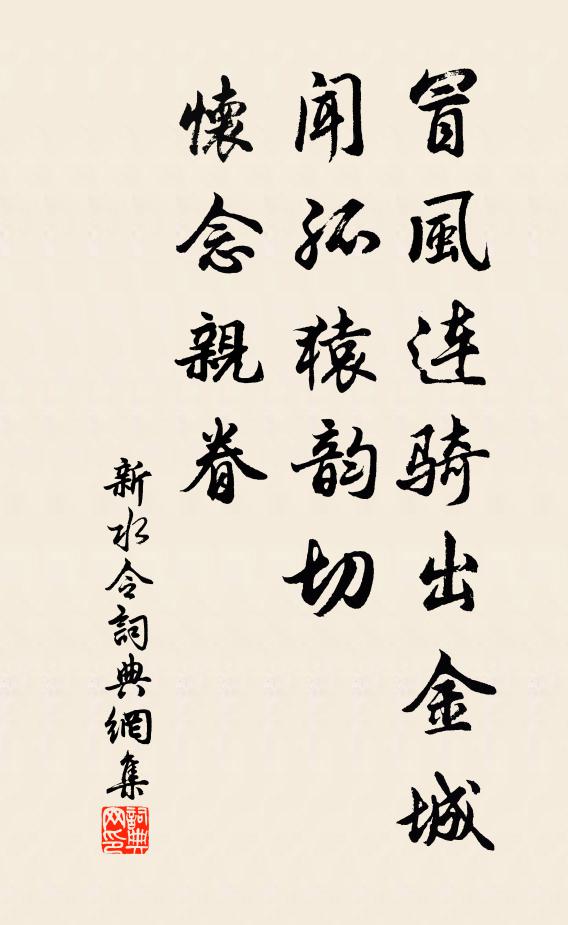 冒風連騎出金城
聞孤猿韵切
懷念親眷
新水令詞典網集
詞典网印